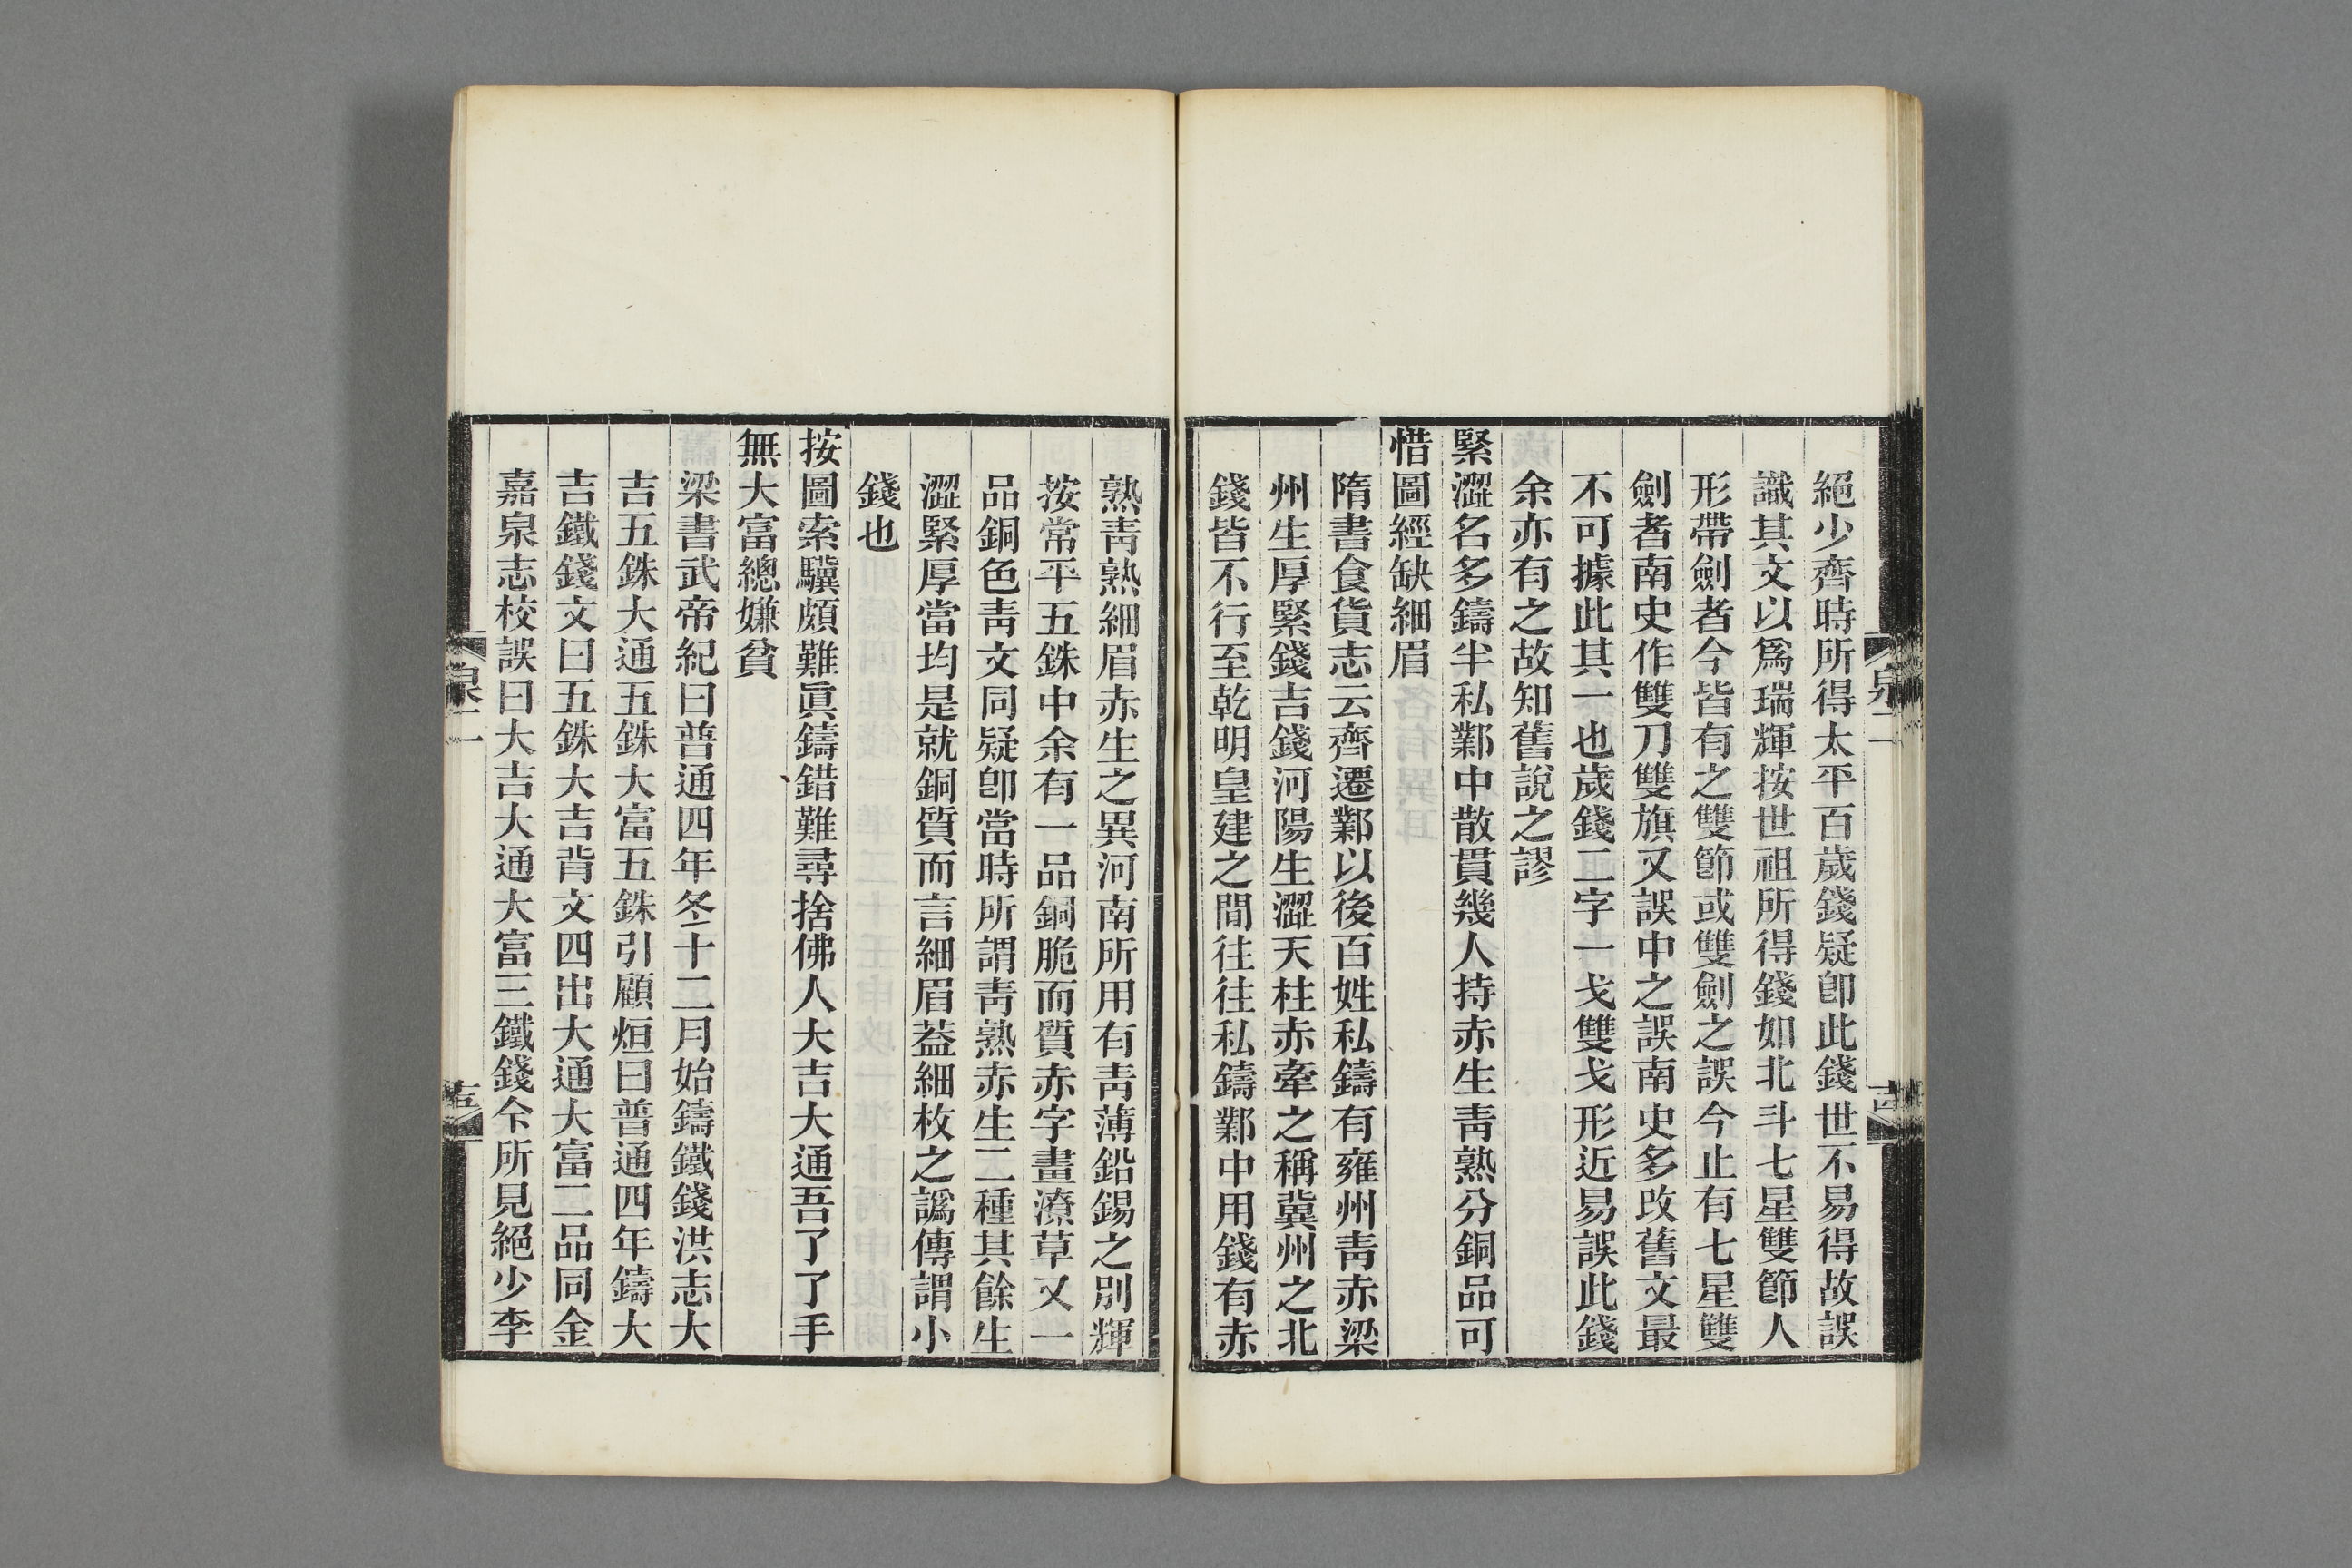 絕少齊時所得太平百歲錢疑卽此錢世不易得故誤
識其文以爲瑞輝按世祖所得錢如北斗七星雙節人
形帶劍者今皆有之雙節或雙劍之誤今止有七星雙
劍者南史作雙刀雙旗又誤中之誤南史多改舊文最
不可據此其一也歲錢二字一戈雙戈形近易誤此錢
余亦有之故知舊說之謬
緊澀名多鑄半私鄴中散貫幾人持赤生靑熟分銅品可
惜圖經缺細眉
隋書食貨志云齊遷鄴以後百姓私鑄有雍州靑赤梁
州生厚緊錢吉錢河陽生澀天柱赤牽之稱冀州之北
錢皆不行至乾明皇建之間往往私鑄鄴中用錢有赤
熟靑熟細眉赤生之異河南所用有靑薄鉛錫之別輝
按常平五銖中余有一品銅脆而質赤字畫潦草又一
品銅色靑文同疑卽當時所謂靑熟赤生二種其餘生
澀緊厚當均是就銅質而言細眉葢細枚之譌傳謂小
錢也
按圖索驥頗難眞鑄錯難尋捨佛人大吉大通吾了了手
無大富總嫌貧
梁書武帝紀曰普通四年冬十二月始鑄鐵錢洪志大
吉五銖大通五銖大富五銖引顧烜曰普通四年鑄大
吉鐵錢文曰五銖大吉背文四出大通大富二品同金
嘉泉志校誤曰大吉大通大富三鐵錢今所見絕少李
泉二